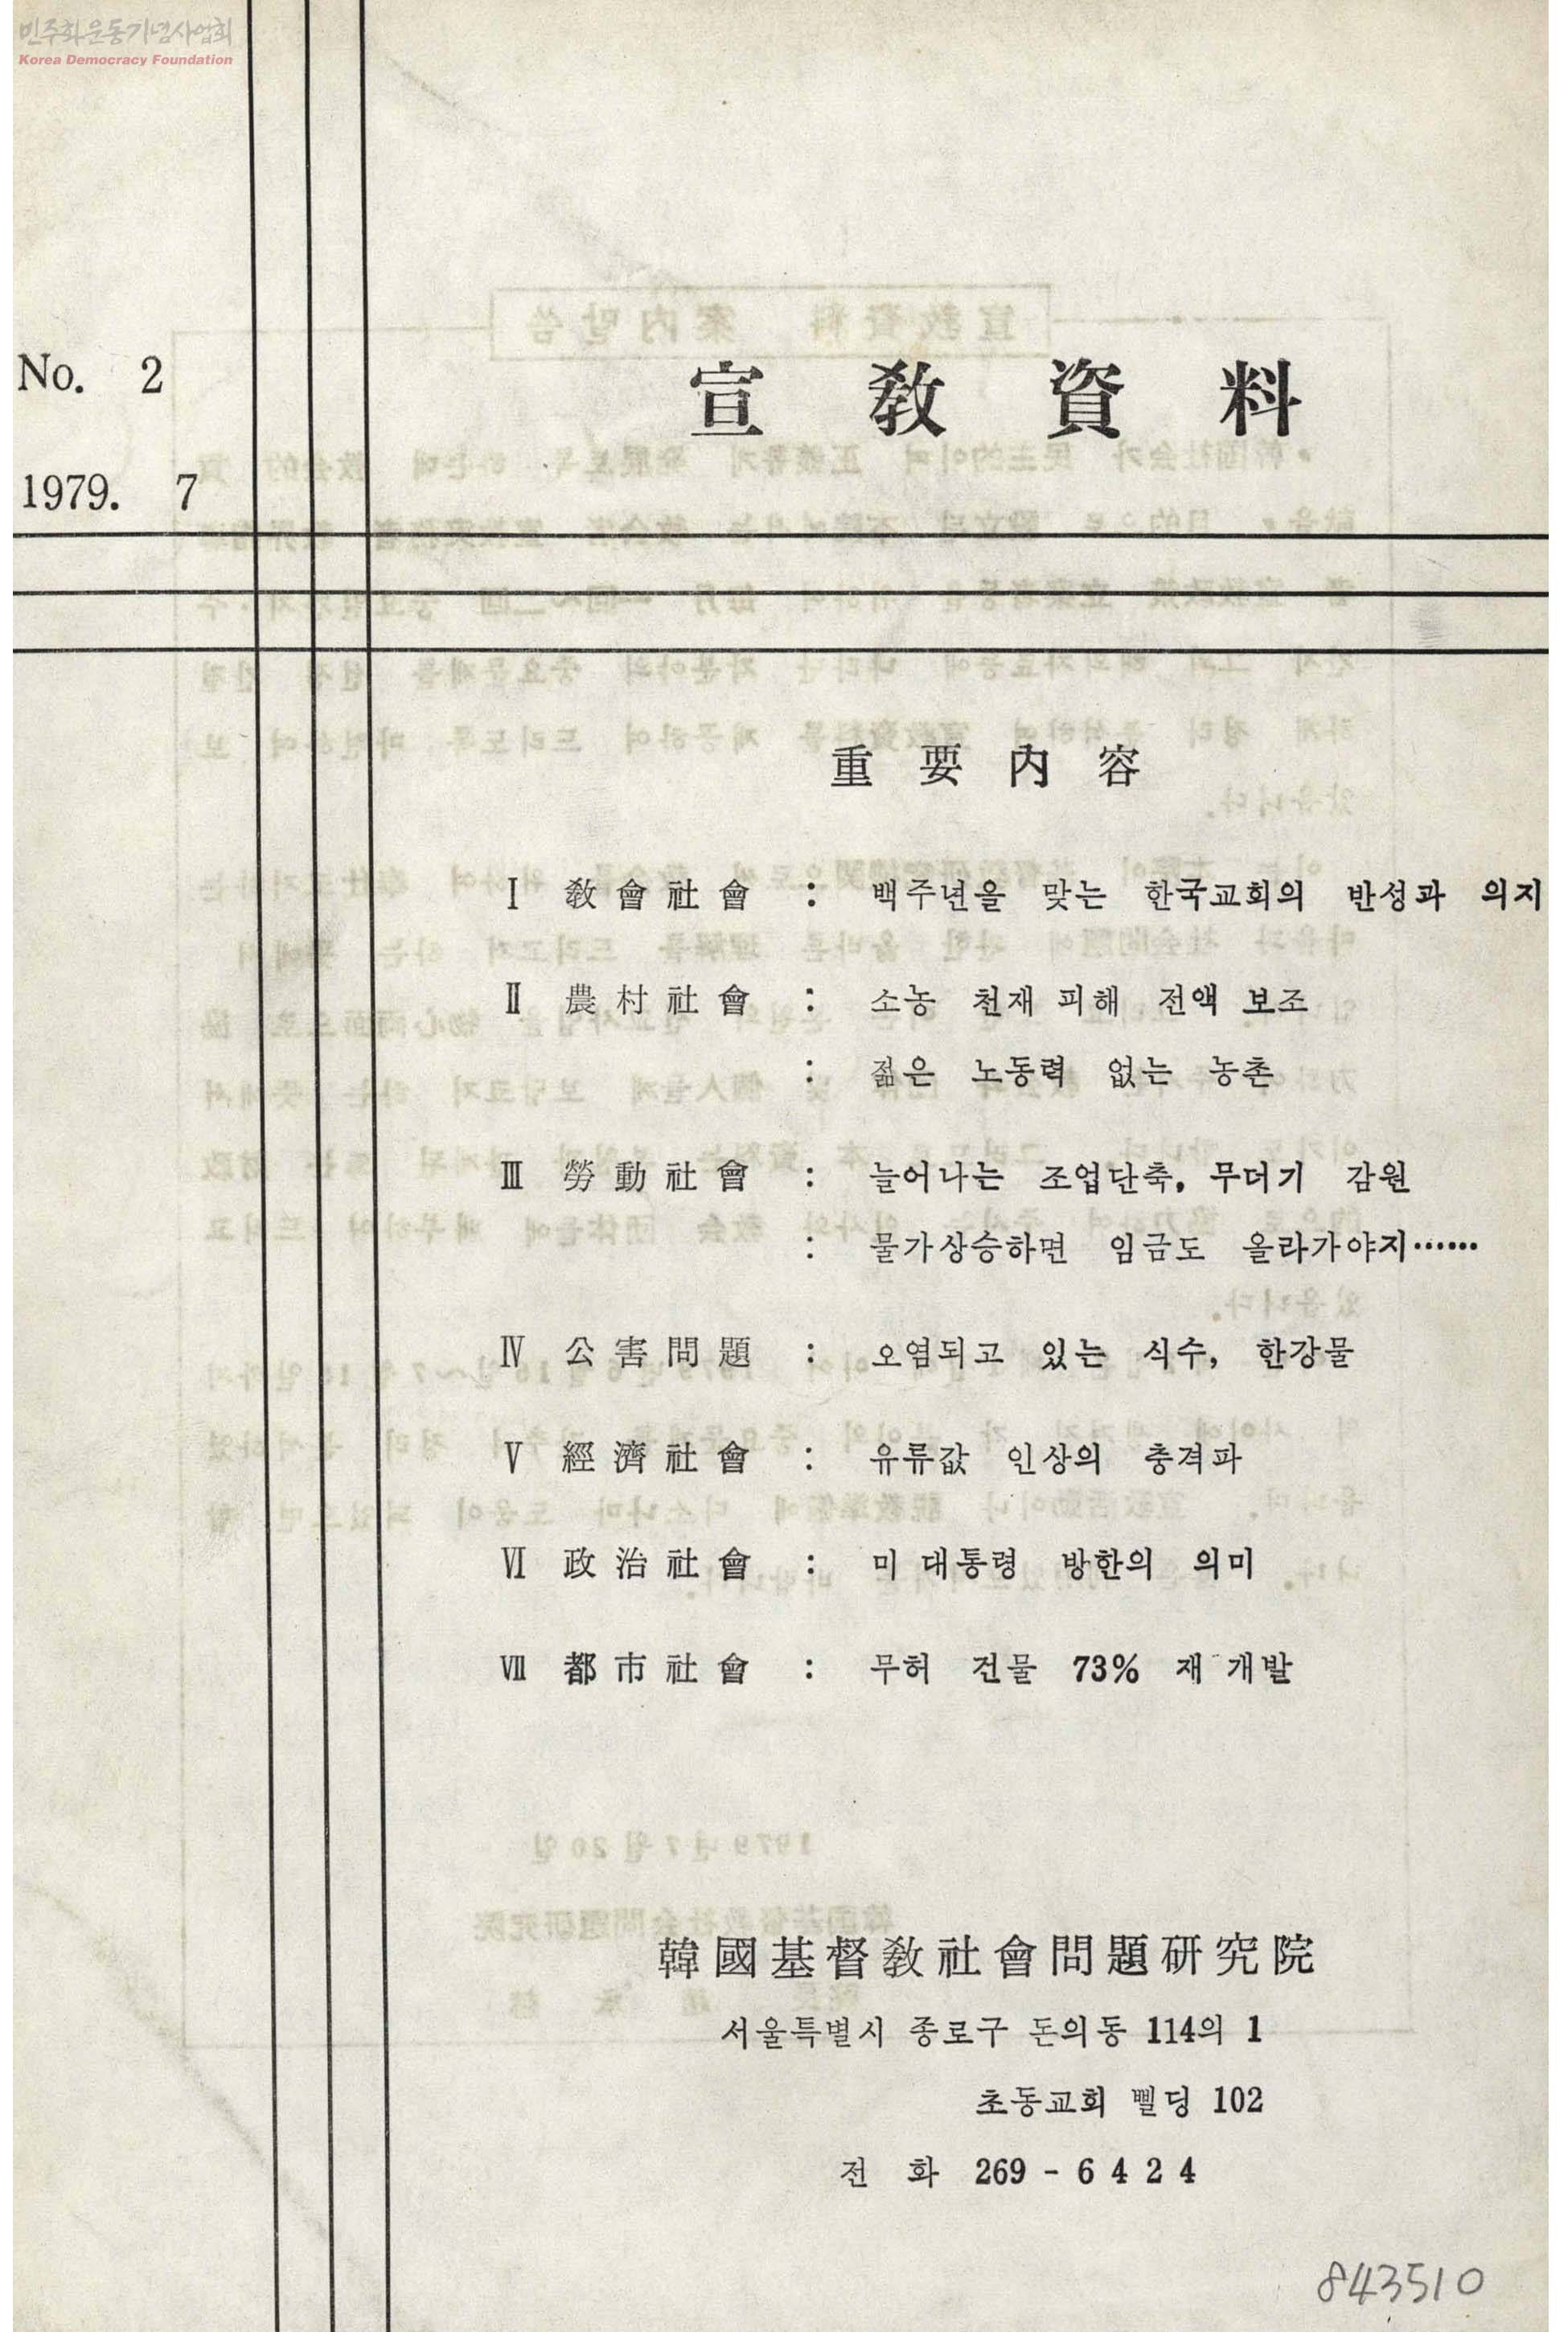 민주화운동기념사업회
Korea Democracy Foundation
No. 2
宣教資料
1979. 7
重要內容
Ⅰ 敎會社會 : 백주년을 맞는 한국교회의 반성과 의지
Ⅱ 農村社會 : 소농 천재 피해 전액 보조
: 젊은 노동력 없는 농촌
Ⅲ 勞動社會 : 늘어나는 조업단축, 무더기 감원
: 물가상승하면 임금도 올라가야지……
Ⅳ 公害問題 : 오염되고 있는 식수, 한강물
Ⅴ 經濟社會 : 유류값 인상의 충격파
Ⅵ 政治社會 : 미 대통령 방한의 의미
Ⅶ 都市社會 : 무허 건물 73% 재개발
韓國基督敎社會問題硏究院
서울특별시 종로구 돈의동 114의 1
초동교회 삘딩 102
전 화 269-6424
843510